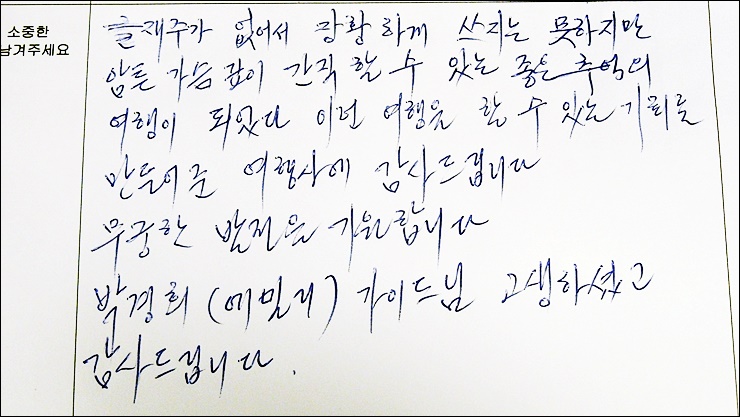 소중한
남겨주세요
글재주가 없어서 장황하게 쓰지는 못하지만
암튼 가슴깊이 간직 할 수 있는 좋은 추억의
여행이 되었다 이런 여행을 할 수 있는 기회를
만들어준 여행사에 감사드립니다
무궁한 발전을 기원합니다
박경희 (에밀리) 가이드님 고생하셨고
감사드립니다.